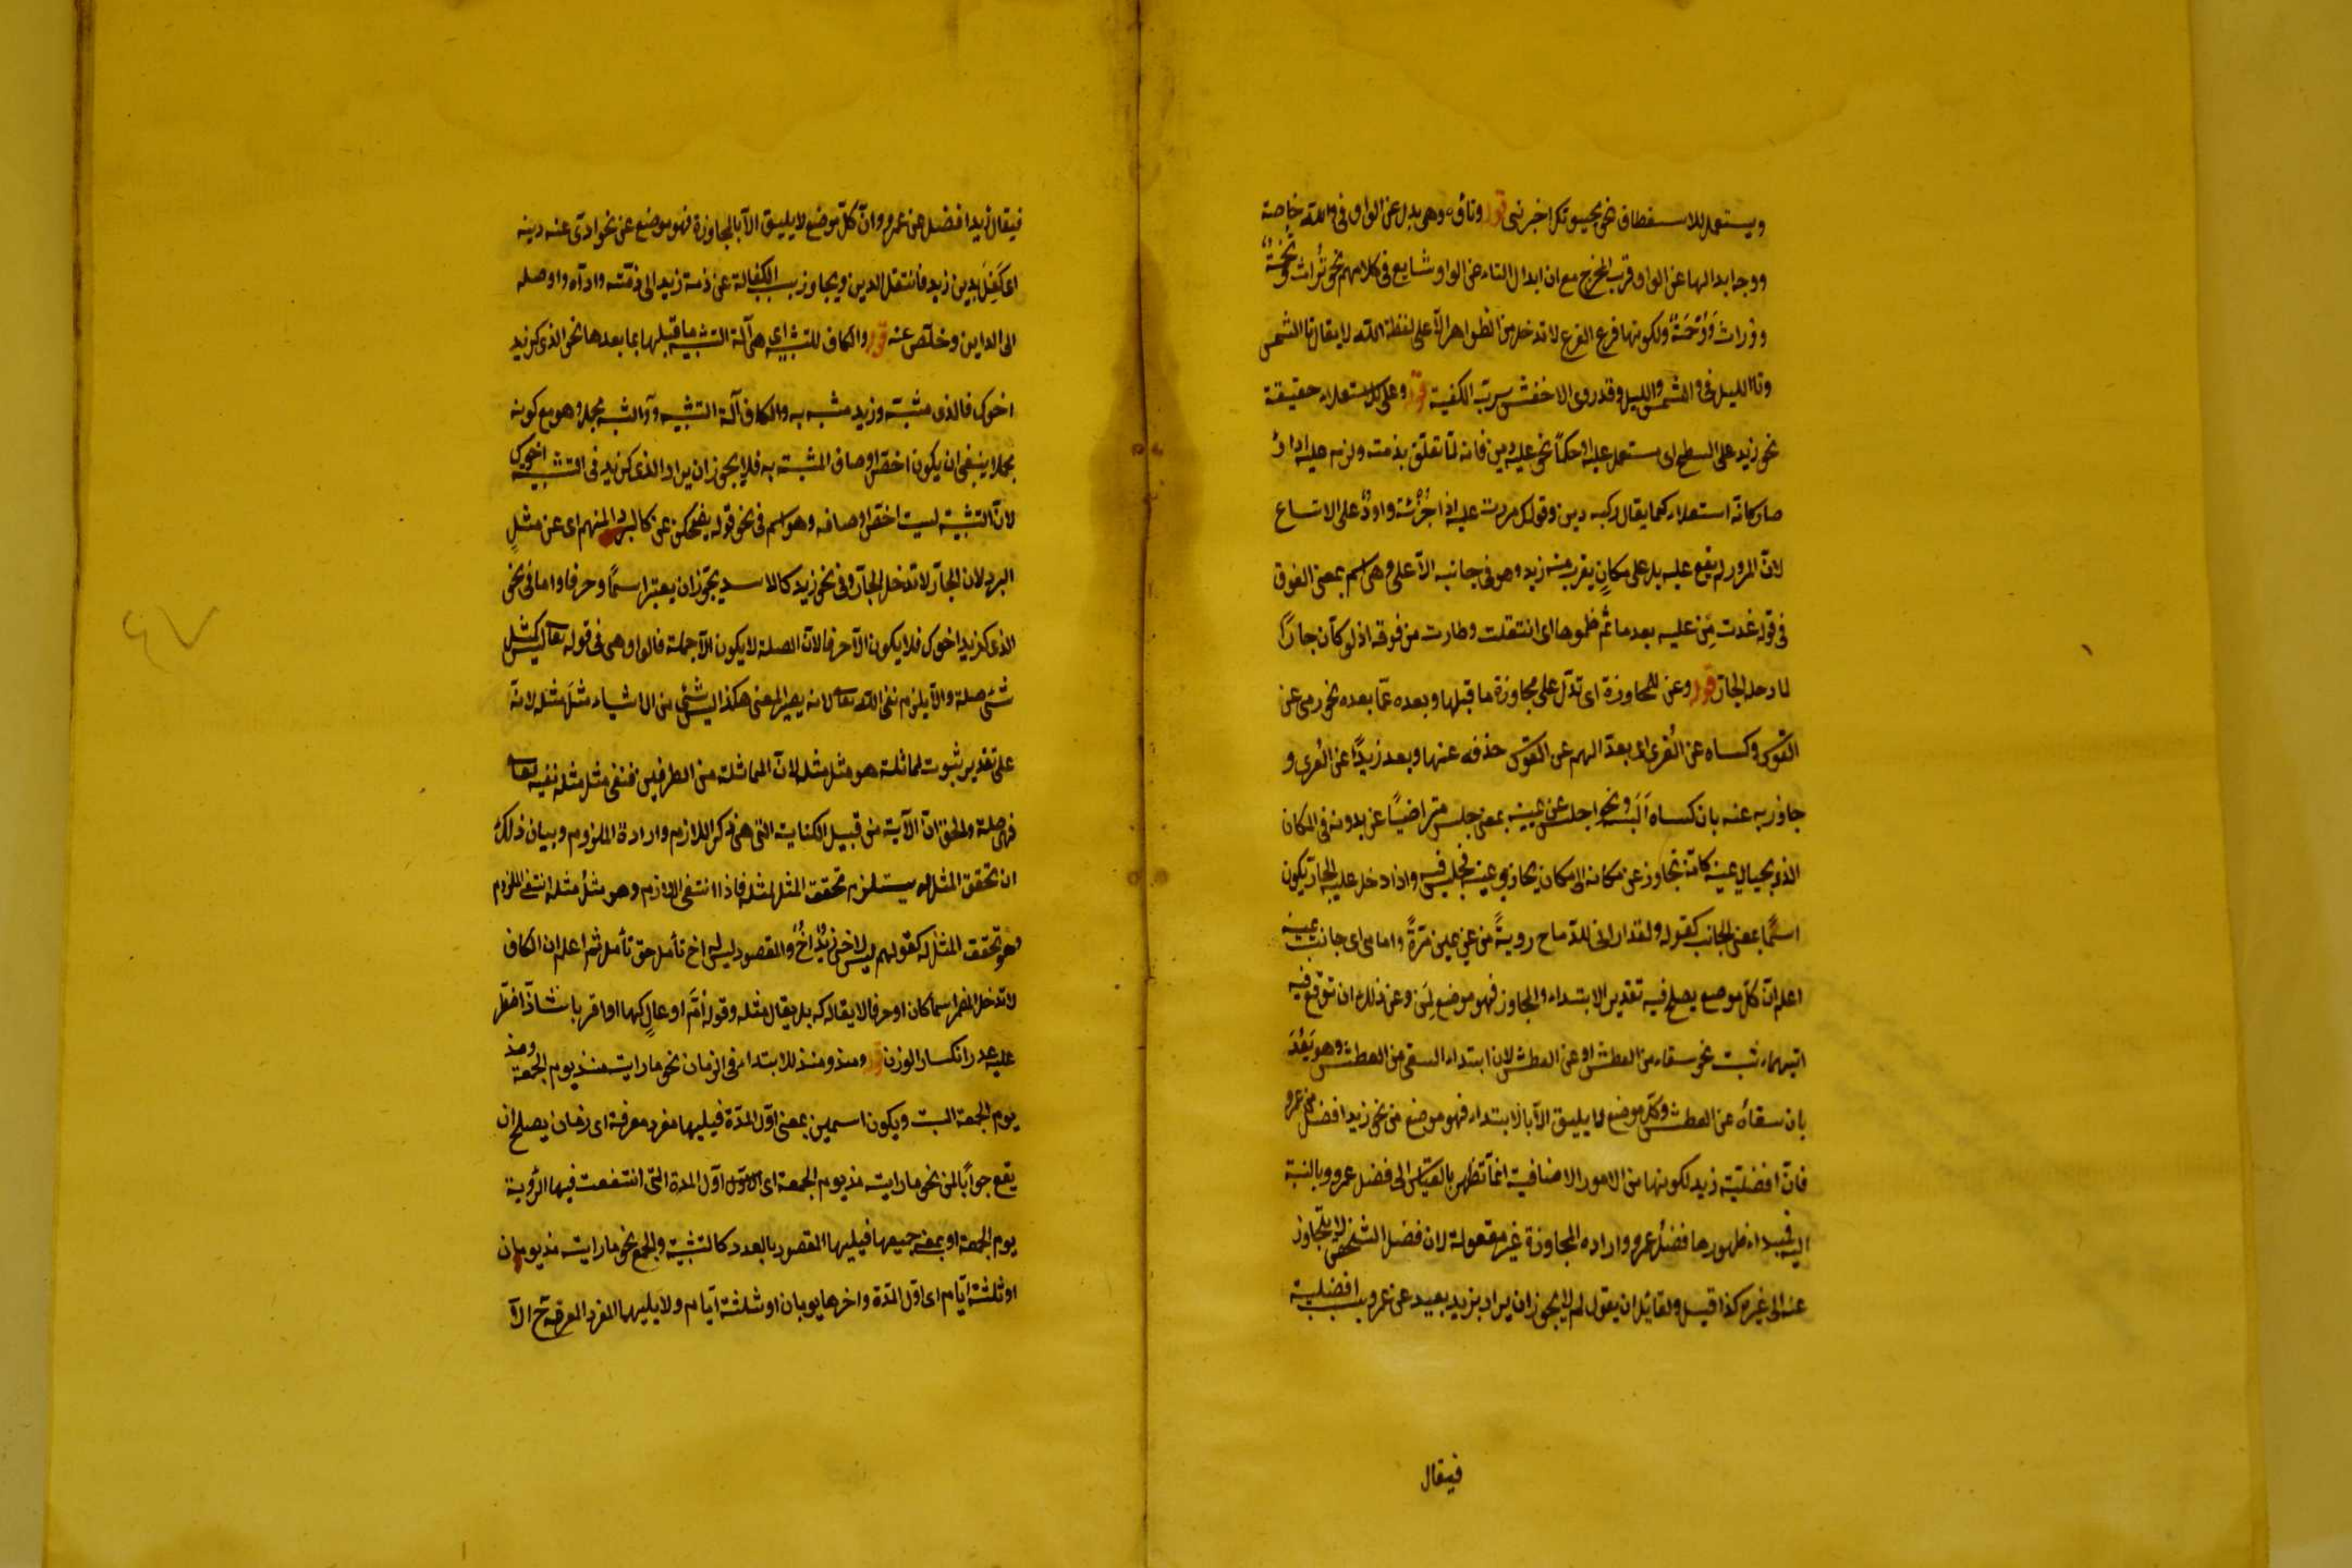 ويستعمل للاستعطاف نحو بحيوتك اخبرنى قوله وتاؤه وهى بدل عن الواو فى والله خاصة
ووجه ابدالها عن الواو قرب المخرج مع ان ابدال التاء عن الواو شايع فى كلامهم نحو تُراث وتُخَمَةٌ
ولكونها فرع الفرع لا تدخل من الظواهر الا على لفظة الله لا يقال تا الشمس
وتا الليل فى والشمس والليل وقد روى الاخفش تربّ الكعبة قوله وعلى للاستعلاء حقيقة
نحو زيد على السطح اى مستعمل عليه او حكمًا نحو عليه دين فانه لمّا تعلق بذمته ولزم عليه اداؤه
صار كانه استعلاه كما يقال ركبه دين وقولك مررت عليه اذا جُزْتَه على الاتساع
لانّ المرور لم يقع عليه بل على مكانٍ يقرب منه زيد وهو فى جانبه الاعلى وهى اسم بمعنى الفوق
فى قوله غدت مِن عليه بعد ما تم ظموها اى انتقلت وطارت من فوقه اذ لو كان جارًا
لما دخله الجار قوله وعن للمجاوزة اى تدلّ على مجاوزة ما قبلها وبعده عمّا بعده نحو رمى عن
القوس وكساه عن العُرى اى بعد السهم عن القوس حذفه عنها وبعد زيدًا عن العُرى و
جاوز به عنه بان كساه ونحو اجلس عن يمينه بمعنى جلس متراضيًا عن بدونه فى المكان
الذى بحيال يمينه كانّه تجاوز عن مكانه الى مكان يحاذى يمينه فجلس فيه واذا دخل عليه الجار يكون
اسمًا بمعنى الجانب كقوله ولقد ارانى للرماح رويةً من عن يمينى مرّةً وامامى اى جانب يمينى
اعلم انّ كلّ موضع يصلح فيه تقدير الابتداء والمجاوز فهو موضع لِمَن وعن فلك ان توقع فيه
ايّهما شئت نحو سقاه من العطش او عن العطش لان ابتداء السقى من العطش وهو بَعُدَ
بان سقاه عن العطش وكلّ موضع لا يليق الا بالابتداء فهو موضع من نحو زيد افضل من عمرو
فانّ افضليّة زيد لكونها من الامور الاضافية انما تظهر بالقياس الى فضل عمرو وبالنسبة
اليه فمبداء ظهورها فضل عمرو وارادة المجاوزة غير معقولة لان فضل الشخص لا يتجاوز
عنه الى غيره كذا قيل ولقائل ان يقول لم لا يجوز ان يراد بزيد بعيد عن عمرو بسبب افضلية
فيقال
فيقال زيد افضل عن عمرو وانّ كلّ موضع لا يليق الّا بالمجاوزة فهو موضع عن نحو ادّى عنه دينه
اى كَفَلَ بدين زيد فانتقل الدين ويجاوز بسبب الكفالة عن ذمة زيد الى ذمّته وادّاه واوصله
الى الداين وخلّص عنه قوله والكاف للتشبيه اى هى آلة التشبيه ما قبلها بما بعدها نحو الذى كزيد
اخوك فالذى مشبّه وزيد مشبه به والكاف آلة التشبيه وهو مع كونه
مجملا ينبغى ان يكون اخصّ اوصاف المشبّه به فلا يجوز ان يراد الذى كزيد فى التشبيه اخوك
لانّ التشبيه ليست اخصّ اوصافه وهو اسم فى نحو قوله يضحكن عن كالبرد المنهم اى عن مثلِ
البرد لان الجارّ لا تدخل الجارّ وفى نحو زيد كالاسد يجوز ان يعتبر اسمًا وحرفا واما فى نحو
الذى كزيد اخوك فلا يكون الّا حرفا لانّ الصلة لا يكون الّا جملة قالوا وهى فى قوله تعالى ليس كمثله
شئ صلة والّا يلزم نفى الله تعالى لانه يصير المعنى هكذا ليس شئ من الاشياء مثلَ مثله لانّه
على تقدير ثبوت لماثلة هو مثل مثله لانّ المماثلة من الطرفين فنفى مثل مثله نفيه تعالى
فهى صلة والحق انّ الآية من قبيل الكناية التى هى ذكر اللازم وارادة الملزوم وبيان ذلك
ان تحقق المثل له يستلزم تحقق المثل لمثله فاذا انتفى اللازم وهو مثلُ مثله انتفى الملزوم
وهو تحقق المثل له كقولهم ليس لاخى زيدٌ اخٌ والمقصود ليس له اخ تأمل حق تأمل ثم اعلم ان الكاف
لا تدخل المضمر اسمًا كان او حرفا لا يقال كه بل يقال مثله وقوله امّ او عالٍ كها او اقربا شاذّ اضطر
عليه حذر انكسار الوزن قوله ومذ ومنذ للابتداء فى الزمان نحو ما رايت منذ يوم الجمعة ومذ
يوم الجمعة السبت ويكون اسمين بمعنى اوّل المدّة فيليها مفرد معرفة اى زمان يصلح ان
يقع جوابًا لمن نحو ما رايته مذ يوم الجمعة اى اوّل المدة التى انتفت فيها الرؤية
يوم الجمعة او بمعنى جميعها فيليها المقصود بالعدد كالتثنية والجمع نحو ما رايته مذ يومان
او ثلثة ايّام اى اوّل المدّة واخرها يومان او ثلثة ايّام ولا يليهما المفرد المعرفة ح الّا
٤٧